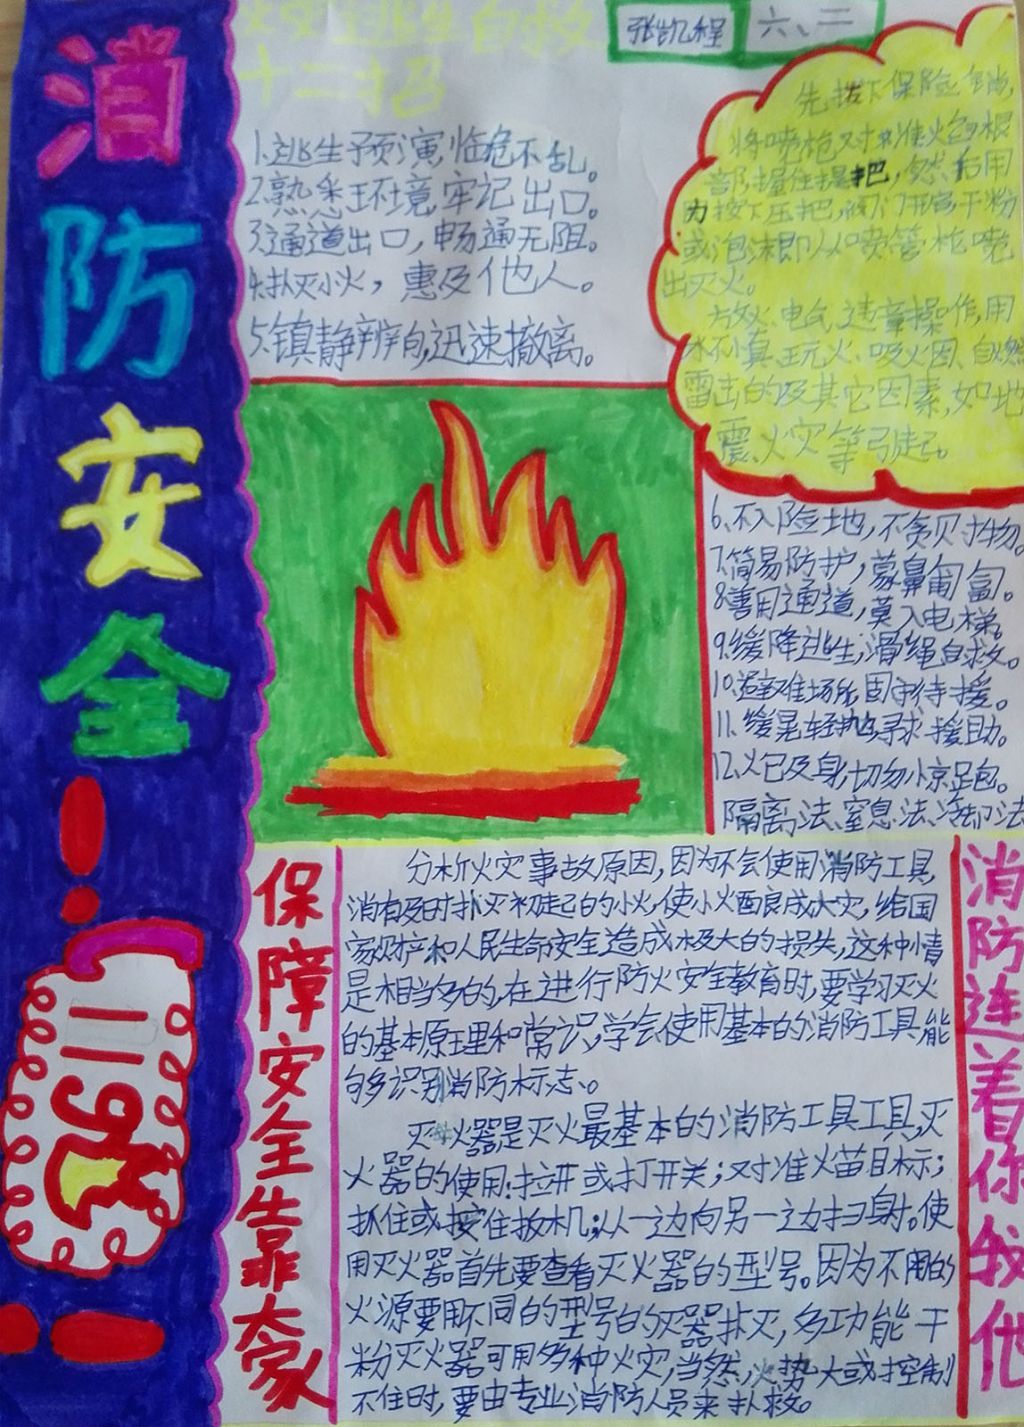 消防安全!
119
火灾逃生自救
十二招
张凯程
六、二
1.逃生预演,临危不乱。
2.熟悉环境,牢记出口。
3.通道出口,畅通无阻。
4.扑灭小火,惠及他人。
5.镇静辨向,迅速撤离。
先拨下保险销,
将喷枪对准火包根
部握住提把,然后用
力按下压把,阀门开启干粉
或泡沫即从喷管枪喷
出灭火。
放火、电气、违章操作,用
火不慎、玩火、吸火因、自然
雷击的及其它因素,如地
震、火灾等引起。
6.不入险地,不贪财物。
7.简易防护,蒙鼻匍匐。
8.善用通道,莫入电梯。
9.缓降逃生,滑绳自救。
10.避难场所,固守待援。
11.缓晃轻抛,寻求援助。
12.火已及身,切勿惊跑。
隔离法、窒息法、冷却法
保障安全靠大家
分析火灾事故原因,因为不会使用消防工具,
消有及时扑灭初起的小火,使小火酉良成大灾,给国
家财产和人民生命安全造成极大的损失,这种情
是相当多的,在进行防火安全教育时,要学习灭火
的基本原理和常识,学会使用基本的消防工具,能
够多识别消防标志。
灭火器是灭火最基本的消防工具工具,灭
火器的使用:拉开或打开关;对准火苗目标;
抓住或按住扳机;从一边向另一边扫身。使
用灭火器首先要查看灭火器的型号。因为不同的
火源要用不同的型号的灭器扑灭,多功能干
粉灭火器可用多种火灾,当然,火势大或控制
不住时,要由专业消防人员来扑救。
消防连着你我他